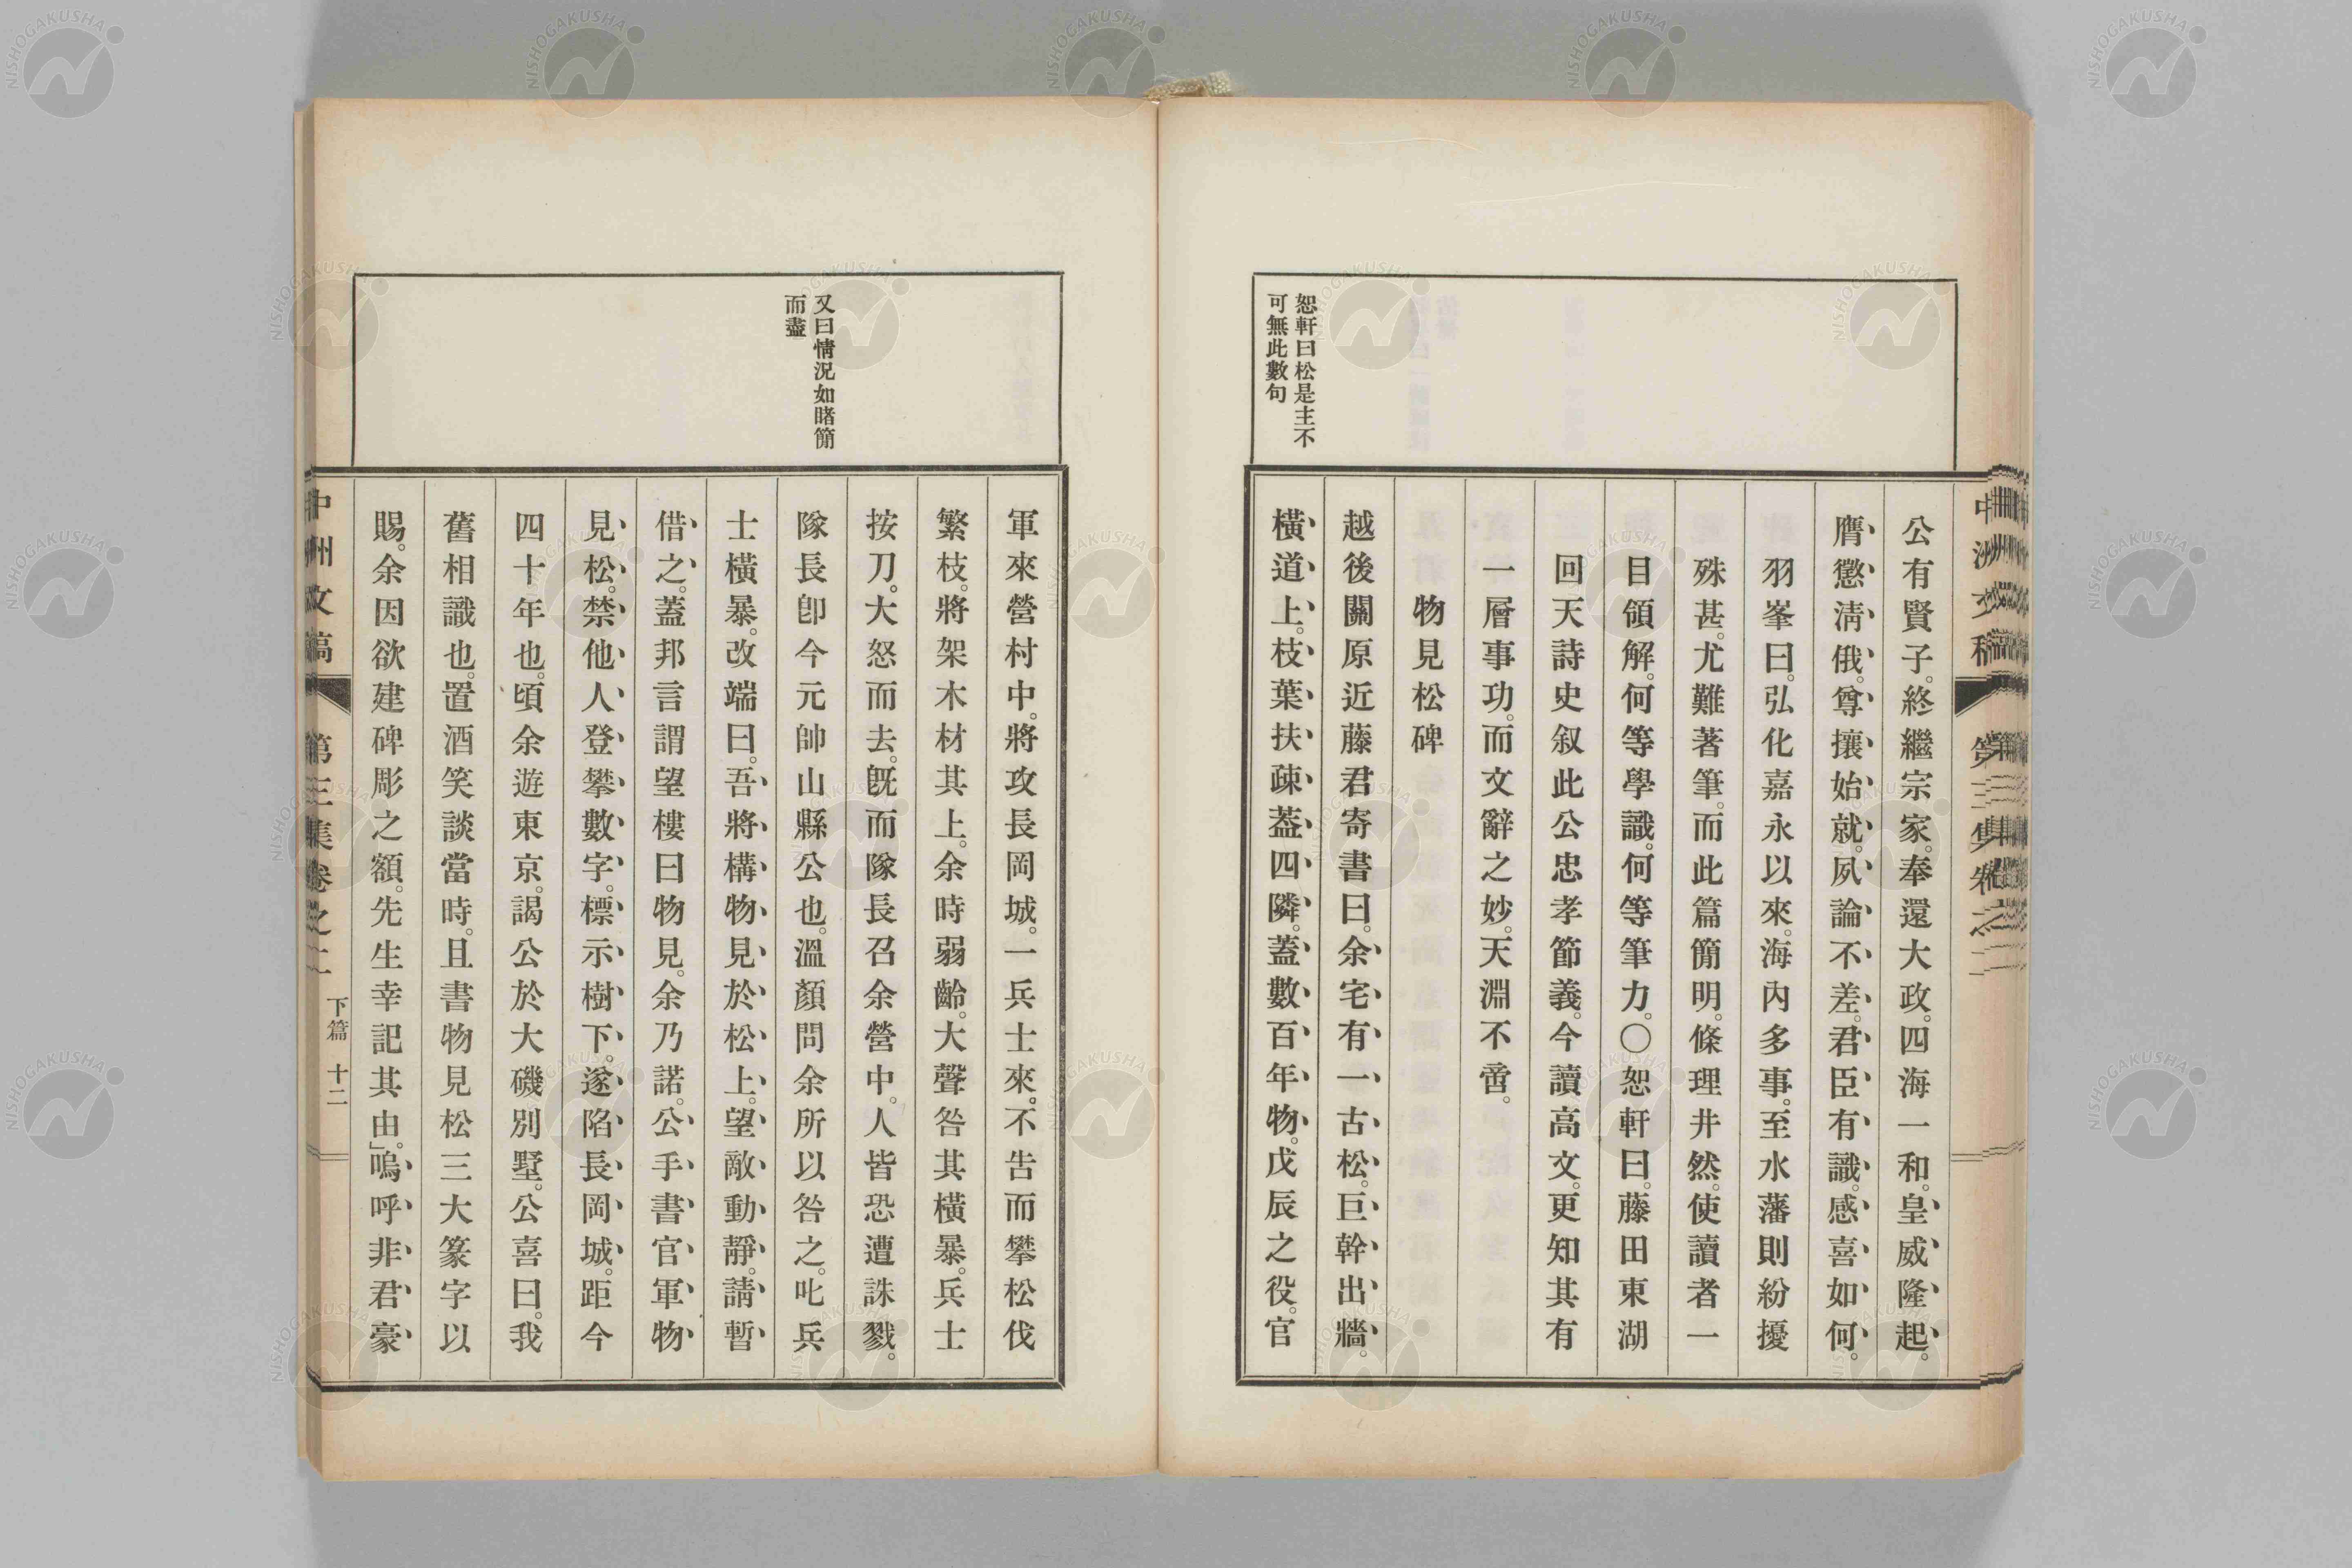 恕軒曰松是主不
可無此數句
公有賢子。終繼宗家。奉還大政。四海一和。皇威隆起。
膺懲淸俄。尊攘始就。夙論不差。君臣有識。感喜如何。
羽峯曰。弘化嘉永以來。海內多事。至水藩則紛擾
殊甚。尤難著筆。而此篇簡明。條理井然。使讀者一
目領解。何等學識。何等筆力。〇恕軒曰。藤田東湖
回天詩史叙此公忠孝節義。今讀高文。更知其有
一層事功。而文辭之妙。天淵不啻。
物見松碑
越後關原近藤君寄書曰。余宅有一古松。巨幹出牆。
橫道上。枝葉扶疎。葢四隣。蓋數百年物。戊辰之役。官
又曰情況如睹簡
而盡
軍來營村中。將攻長岡城。一兵士來。不告而攀松伐
繁枝。將架木材其上。余時弱齡。大聲咎其橫暴。兵士
按刀。大怒而去。旣而隊長召余營中。人皆恐遭誅戮。
隊長卽今元帥山縣公也。溫顏問余所以咎之。叱兵
士橫暴。改端曰。吾將構物見於松上。望敵動靜。請暫
借之。蓋邦言謂望樓曰物見。余乃諾。公手書官軍物
見松。禁他人登攀數字。標示樹下。遂陷長岡城。距今
四十年也。頃余遊東京。謁公於大磯別墅。公喜曰。我
舊相識也。置酒笑談當時。且書物見松三大篆字以
賜。余因欲建碑彫之額。先生幸記其由。」嗚呼非君豪
中洲文稿 第三集卷之二 下篇 十二
中洲文稿 第三集卷之二